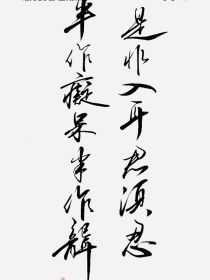 是非入耳君須忍
半作癡呆半作聾